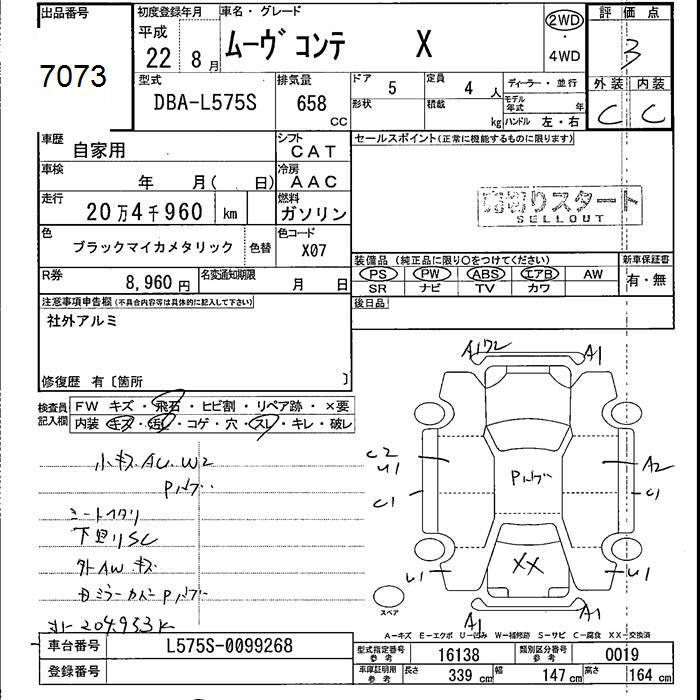 出品番号
7073
初度登録年月
平成
22年 8月
車名・グレード
ムーヴ コンテ X
2WD
・
4WD
評価点
3
外装 内装
C C
型式
DBA-L575S
排気量
658
CC
ドア
5
形状
定員
4人
積載
kg
ディーラー・並行
モデル年式 年
ハンドル 左・右
車歴
自家用
シフト
CAT
車検
年 月( 日)
冷房
AAC
走行
20万4千960 km
燃料
ガソリン
色
ブラックマイカメタリック
色替
色コード
X07
R券
8,960円
名変通知期限
月 日
セールスポイント(正常に機能するものに限ります)
売切りスタート
SELLOUT
装備品 (純正品に限り○をつけてください)
PS PW ABS エアB AW
SR ナビ TV カワ
新車保証書
有・無
後日品
注意事項申告欄(不具合内容等は具体的に記入して下さい)
社外アルミ
修復歴 有〔箇所 〕
検査員記入欄
FW キズ・飛石・ヒビ割・リペア跡・×要
内装 キズ・汚レ・コゲ・穴・スレ・キレ・破レ
小キズAU.W2
シートヘタリ
下回りSC
外AWキズ
A1 A1
U1
C1
A2
C1
XX
U1 U1
A1 A1
スペア
A-キズ E-エクボ U-凹み W-補修跡 S-サビ C-腐食 XX-交換済
車台番号
L575S-0099268
登録番号
型式指定番号 参考
16138
類別区分番号 参考
0019
車庫証明用 参考
長さ 339 cm 幅 147 cm 高さ 164 cm